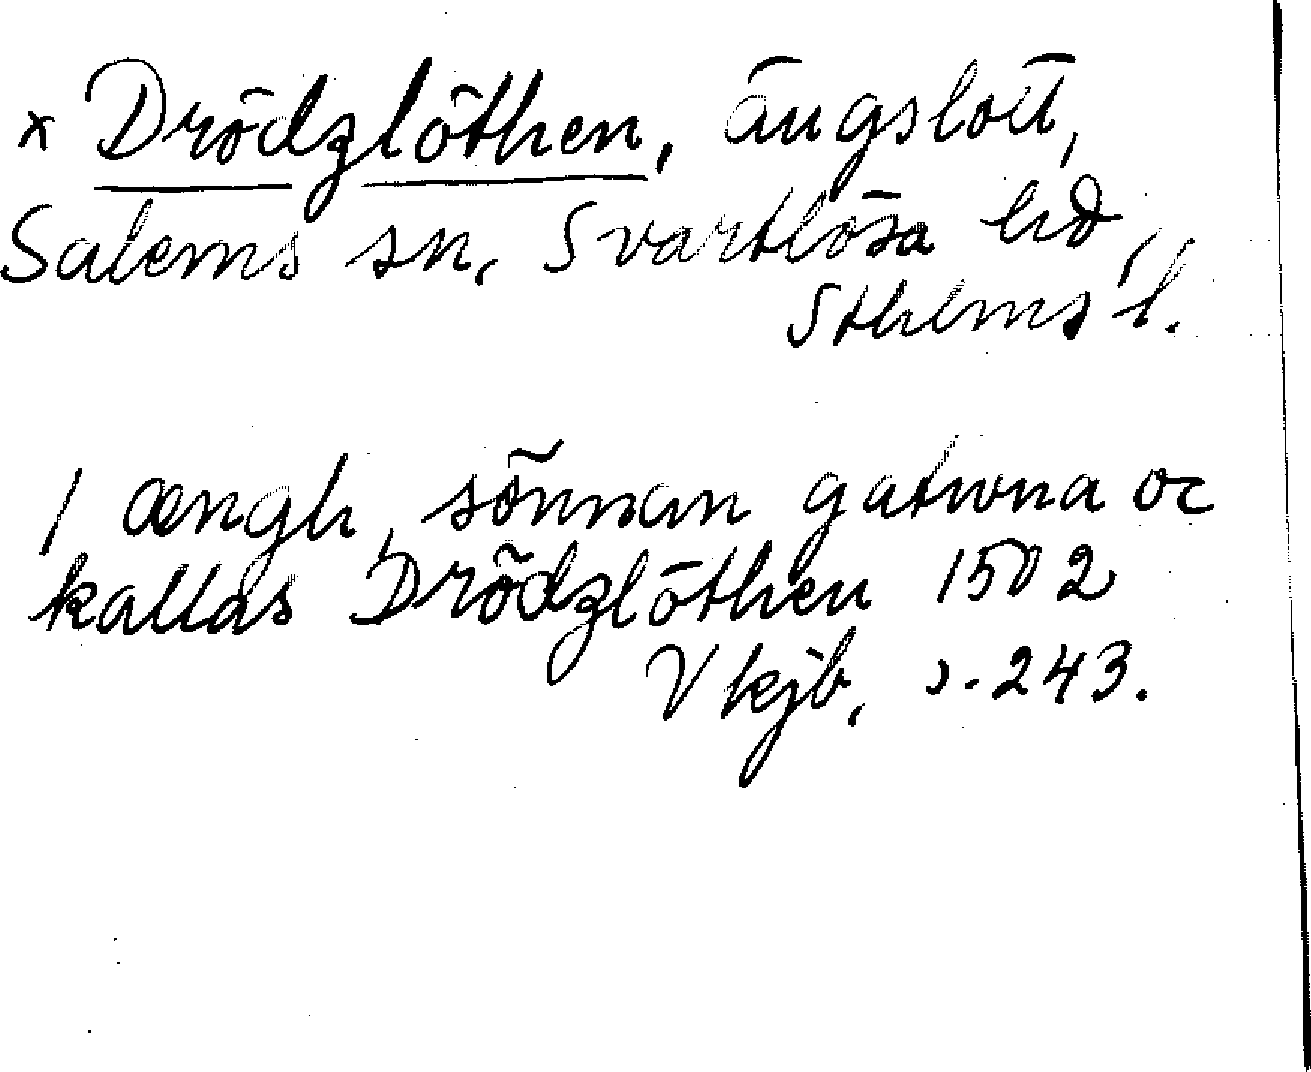 x Drödzlöthen, ängslott,
Salems sn, Svartlösa hd,
Sthlms l.
1 ængh, sönnan gatwna oc
kallas Drödzlöthen 1502
Vkjb, s. 243.